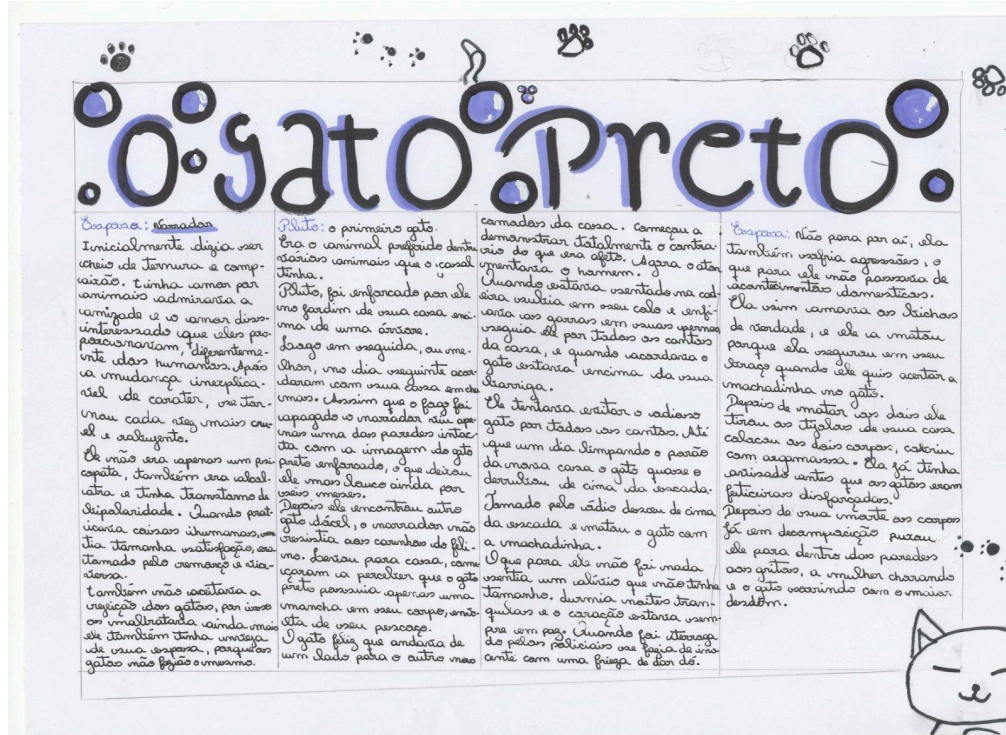 O gato Preto
Esposa: Narrador
Inicialmente dizia ser
cheio de ternura e comp-
aixão. tinha amor por
animais admirava a
amizade e o amor diss-
interessado que eles pro-
porcionavam, diferenteme-
nte dos humanos. Após
a mudança inexplica-
vel de carater, se tor-
nou cada vez mais cru-
el e raluyento.
Ele não era apenas um psi
copata, também era alcol-
atra e tinha transtorno de
bipolaridade. Quando prat-
icava coisas ihumanas,
tia tamanha satisfação, era
tomado pelo remorço e vice-
versa.
também não aceitava a
rejeição dos gatos, por isso
os maltratava ainda mais
ele também tinha inveja
de sua esposa, porque os
gatos não fazião o mesmo.
Pluto: o primeiro gato.
Era o animal preferido dentre
vários animais que o casal
tinha.
Pluto, foi enforcado por ele
no jardim de sua casa enci
ma de uma árvore.
Logo em seguida, ou me-
lhor, no dia seguinte acor
daram com sua casa em cha
mas. Assim que o fogo foi
apagado o narrador viu ape
nas uma das paredes intac
ta com a imagem do gato
preto enforcado, o que deixou
ele mas louco ainda por
seis meses.
Depois ele encontrou outro
gato dócel, o narrador não
resistia aos carinhos do feli-
no. Levou para casa, come
çaram a perceber que o gato
preto possuia apenas uma
mancha em seu corpo, envo
lta de seu pescoço.
O gato feliz que andava de
um lado para o outro nos
camados da casa. começou a
demonstrar totalmente o contra-
rio do que era afeto. Agora o ator
mentaria o homem.
Quando estava sentado na cad
eira subia em seu colo e enfi-
ava as garras em suas pernas
seguia ele por todos os cantos
da casa, e quando acordava o
gato estava encima da sua
barriga.
Ele tentava evitar o odioso
gato por todos os cantos. Até
que um dia limpando o porão
da nova casa o gato quase o
derrubou de cima da escada.
Tomado pelo ódio desceu de cima
da escada e matou o gato com
a machadinha.
O que para ele não foi nada
sentia um alivio que não tinha
tamanho. durmia noites tran-
quilas e o coração estava sem-
pre em paz. Quando foi
do pelos policiais se fazia de ino
cente com uma frieza de dar dó.
Esposa: Não para por aí, ela
também sofria agressões, o
que para ele não passava de
acontecimentos domesticos.
Ela sim amava os bichos
de verdade, e ele a matou
porque ela segurou em seu
braço quando ele quis acertar a
machadinha no gato.
Depois de matar os dois ele
tirou os tijolos de sua casa
colocou os dois corpos, cobriu
com argamassa. Ela já tinha
avisado antes que os gatos eram
feiticeiras disfarçadas.
Depois de sua morte os corpos
já em decomposição puxou
ele para dentro das paredes
aos gritos, a mulher chorando
e o gato sorrindo com o maior
desdém.